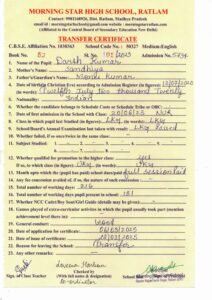 MORNING STAR HIGH SCHOOL, RATLAM
Contact: 9981146926, Dist. Ratlam, Madhya Pradesh
(Affiliated to the Central Board of Secondary Education New Delhi)
TRANSFER CERTIFICATE
C.B.S.E. Affiliation No. 1030363 School Code No. : 50327 Medium:English
Book No. 02 Sl. No. Admission No. 5794
1. Name of the Pupil Darsh Kumar
2. Mother's Name Sandhiya
3. Father's/Guardian's Name Manoj Kumar
4. Date of birth(in Christian Era) according to Admission Register (in figures)
(in words) Twelfth July two thousand Twenty
5. Nationality Indian
6. Whether the candidate belongs to Schedule Caste or Schedule Tribe or OBC
7. Date of first admission in the School with Class NUR
8. Class in which pupil last Studied (in figures) LKG (in words) LKG
9. School/Board's Annual Examination last taken with result LKG Passed
10. Whether failed, if so once/twice in the same class
11. Subject Studied: 1. 2. 3.
4. 5. 6.
12. Whether qualified for promotion to the higher class yes
If so, to which class (in figure) UKG (in words) UKG
13. Month upto which the (pupil has paid) school dues/paid full session paid
14. Any fee concession availed of, if so, the nature of such concession
15. Total number of working days 216
16. Total number of working days pupil present in school 181
17. Whether NCC Cadet/Boy Scout/Girl Guide (details may be given)
18. Games played of extra curricular activities in which the pupil usually took part (mention
achievement level there in)
19. General conduct Good
20. Date of application of certificate
21. Date of issue of certificate
22. Reason for leaving the School Transfer
23. Any other remarks
Sign. of Class Teacher
Checked by
(With full name & designation)
Sign of Principal